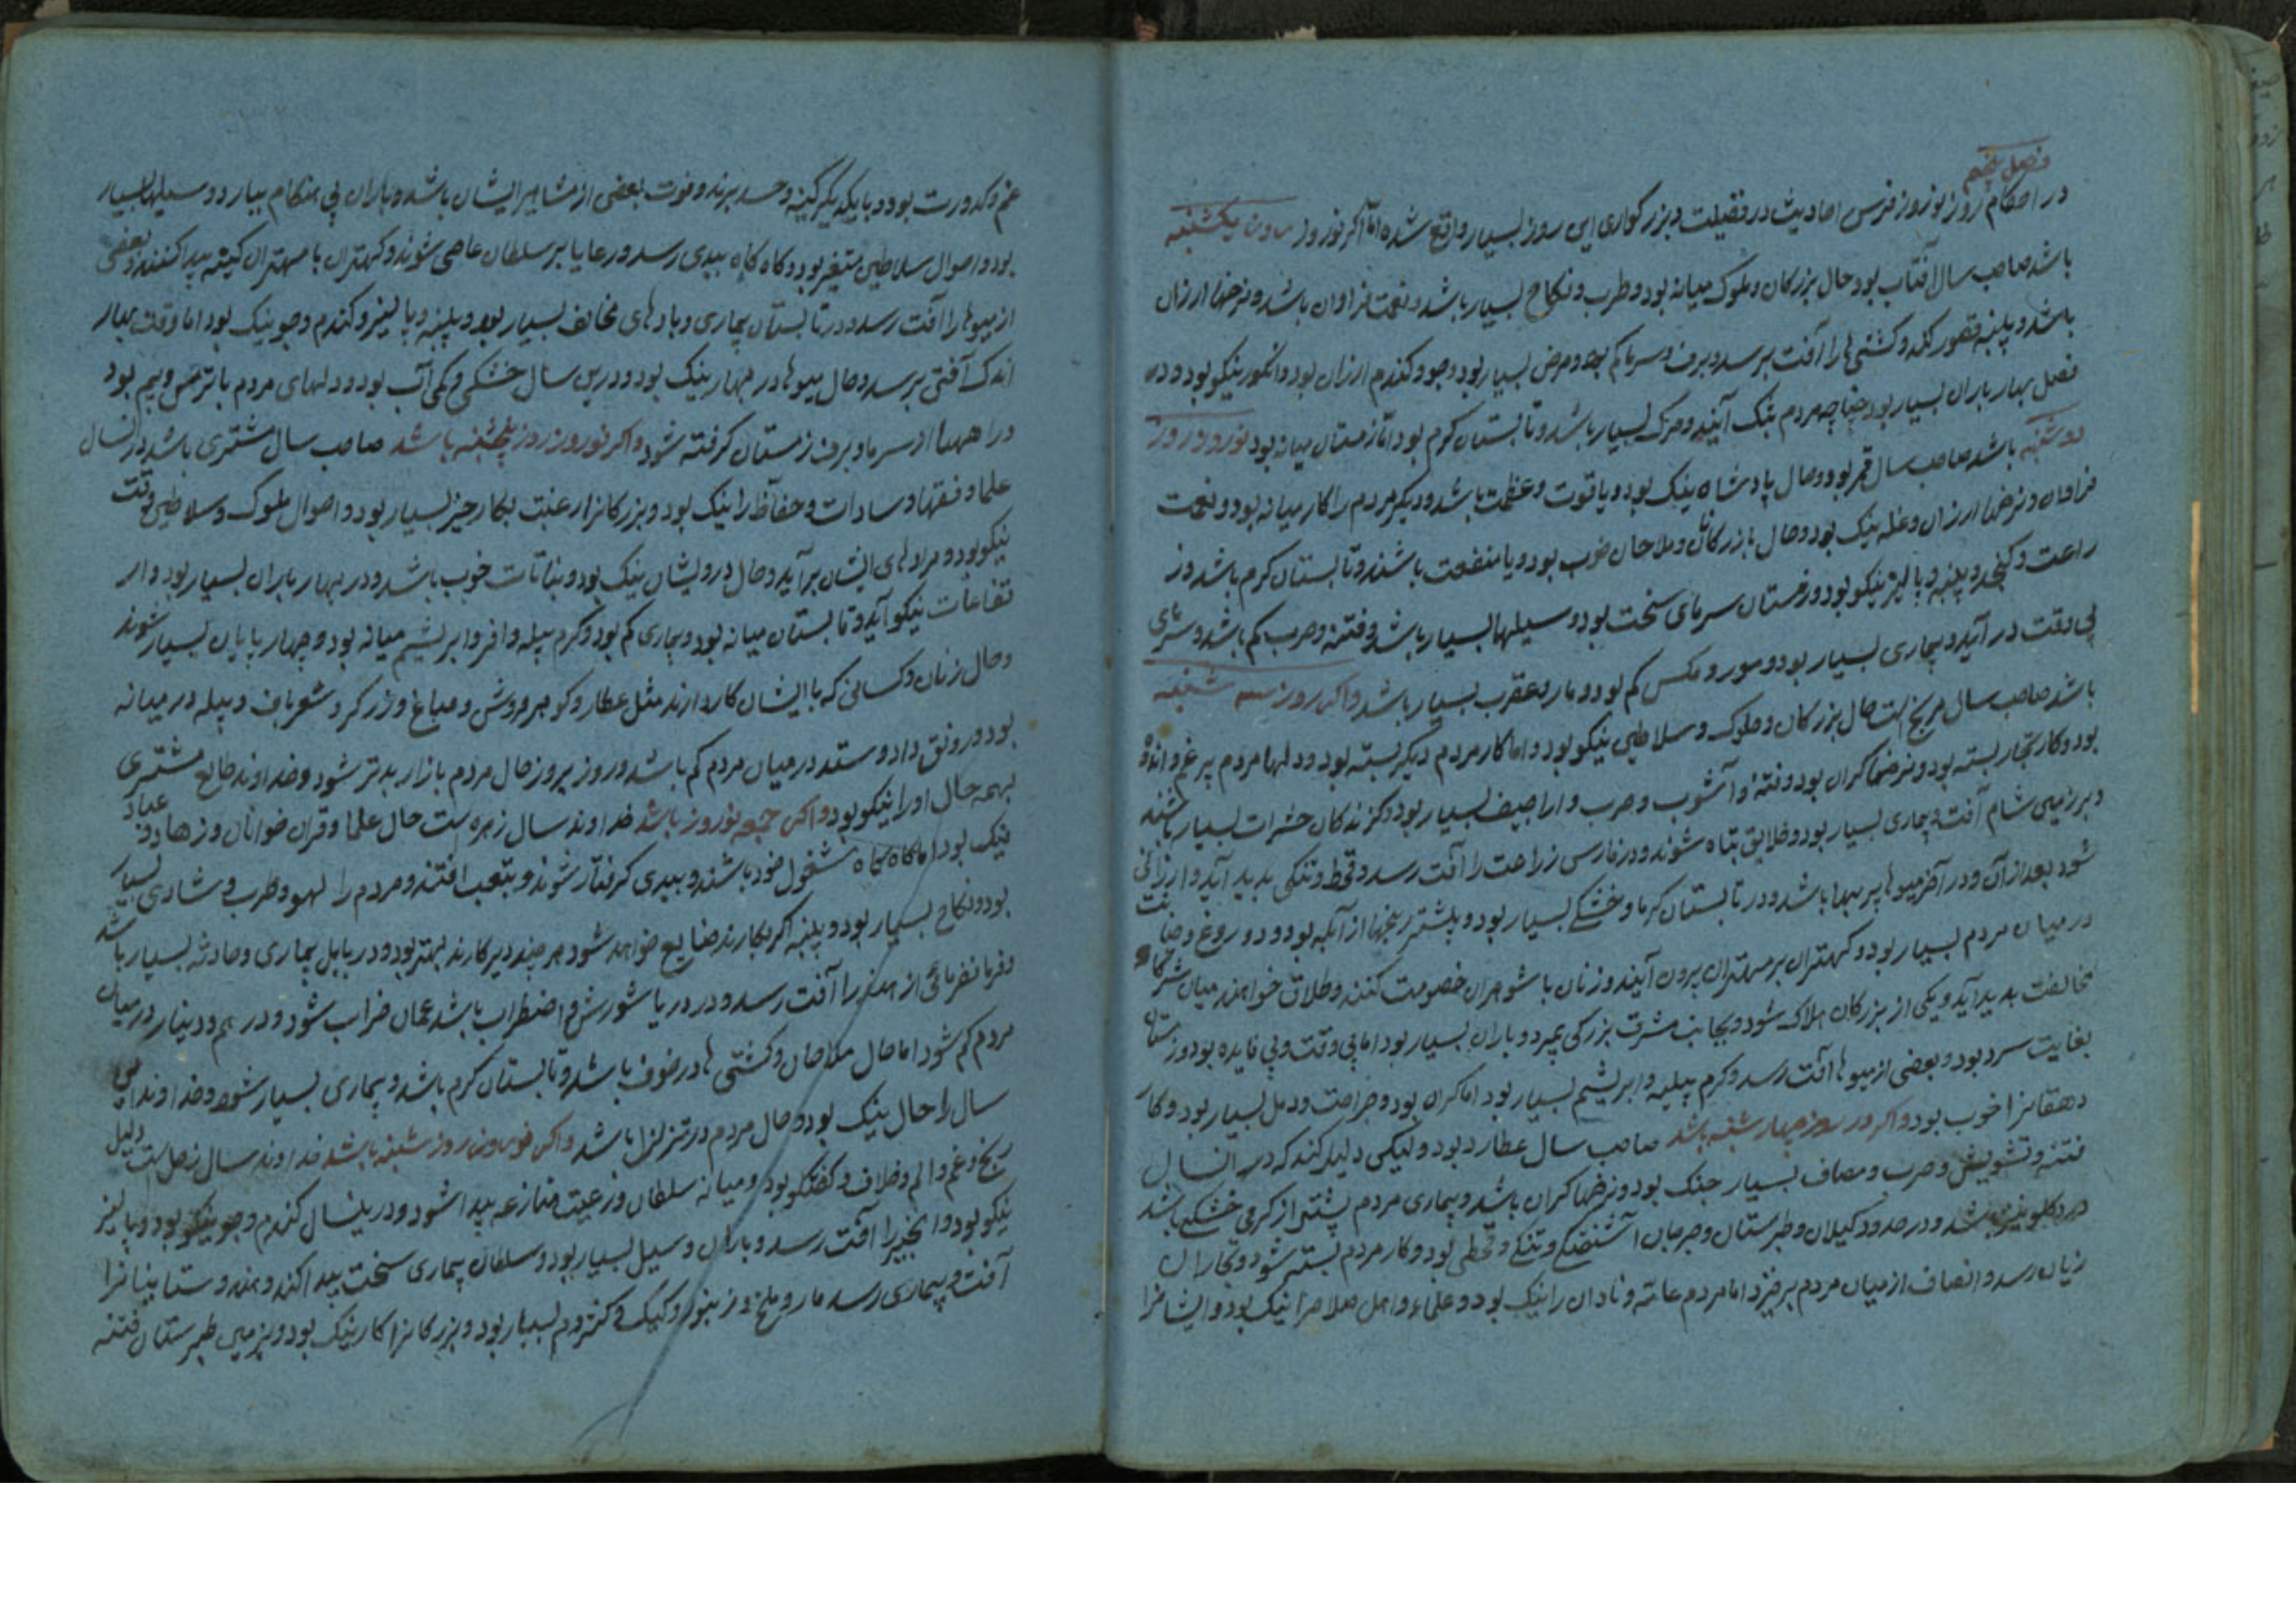 فصل پنجم
در احکام روز نوروز فرس احادیث در فضیلت و بزرکواری این روز بسیار واقع شده اما اکر نوروز یکشنبه
باشد صاحب سال آفتاب بود حال بزرکان و ملوک میانه بود و طرب و نکاح بسیار باشد و نعمت فراوان باشد و نرخها ارزان
باشد و پنبه قصور کند و کشتی ها را آفت برسد و برف و سرما کم بود و مرض بسیار بود و جو و کندم ارزان بود و انکور نیکو بود و در
فصل بهار باران بسیار بود چنانچه مردم بتنک آیند و مرک بسیار باشد و تابستان کرم بود اما زمستان میانه بود نوروز روز
دوشنبه باشد صاحب سال قمر بود و حال پادشاه نیک بود و با قوت و عظمت باشد و دیکر مردم را کار میانه بود و نعمت
فراوان و نرخها ارزان و غله نیک بود و حال بازرکانان و ملاحان خوب بود و با منفعت باشند و تابستان کرم باشد و ز
راعت و کنجد و پنبه و پالیز نیکو بود و زمستان سرمای سخت بود و سیلها بسیار باشد و فتنه و حرب کم باشد و سرمای
بی وقت در آید و بیماری بسیار بود و مور و مکس کم بود و مار و عقرب بسیار باشد و اکر روز سه شنبه
باشد صاحب سال مریخ است حال بزرکان و ملوک و سلاطین نیکو بود و اما کار مردم دیکر بسته بود و دلها مردم پر غم و اندوه
بود و کار تجار بسته بود و نرخها کران بود و فتنه و آشوب و حرب و اراجیف بسیار بود و کزندکان حشرات بسیار باشند
و بر زمین شام آفت و بیماری بسیار بود و خلایق تباه شوند و در فارس زراعت را آفت رسد و قحط و تنکی پدید آید و ارزانی
شود بعد از آن و در آخر میوها پر بها باشد و در تابستان کرما و خشکی بسیار بود و بیشتر رنجها از آبله بود و دروغ و خیانت
در میان مردم بسیار بود و کهتران بر مهتران برون آیند و زنان با شوهران خصومت کنند و طلاق خواهند میان شرکاء
مخالفت پدید آید و یکی از بزرکان هلاک شود و بجانب مشرق بزرکی بمیرد و باران بسیار بود اما بی وقت و بی فایده بود و زمستان
بغایت سرد بود و بعضی از میوها آفت رسد و کرم پیله و ابریشم بسیار بود اما کران بود و جراحت و دمل بسیار بود و کار
دهقانرا خوب بود و اکر در روز چهارشنبه باشد صاحب سال عطارد بود و لیکن دلیل کند که در آنسال
فتنه و تشویش و حرب و مصاف بسیار جنک بود و نرخها کران باشد و بیماری مردم بیشتر از کرمی خشکی باشد
درد کلو نیز باشد و در حدود کیلان و طبرستان و جرجان آشفتکی و تنکی و قحطی بود و کار مردم بسته شود و تجار آن
زیان رسد و انصاف از میان مردم برخیزد اما مردم عامه و نادان را نیک بود و علماء و اهل صلاح را نیک بود و ایشانرا
غم و کدورت بود و با یکدیکر کینه و حسد برند و فوت بعضی از مشاهیر ایشان باشد و باران بی هنکام ببارد و سیلها بسیار
بود و احوال سلاطین متغیر بود و کاه کاه ببدی رسد و رعایا بر سلطان عاصی شوند و کهتران با مهتران کینه پیدا کنند و بعضی
از میوها را آفت رسد و در تابستان بیماری و بادهای مخالف بسیار بود و پنبه و پالیز و کندم و جو نیک بود اما وقت بهار
اندک آفتی برسد و حال میوها در بهار نیک بود و درین سال خشکی و کمی آب بود و دلهای مردم با ترس و بیم بود
در اهمها از سرما و برف زمستان کرفته شود و اکر نوروز روز پنجشنبه باشد صاحب سال مشتری باشد در آنسال
علما و فقها و سادات و حفاظ را نیک بود و بزرکانرا رغبت بکار خیر بسیار بود و احوال ملوک و سلاطین وقت
نیکو بود و مرادهای ایشان بر آید و حال درویشان نیک بود و نباتات خوب باشد و در بهار باران بسیار بود و ار
تفاعات نیکو آید و تابستان میانه بود و بیماری کم بود و کرم پیله وافر و ابریشم میانه بود و چهار پایان بسیار شوند
و حال زنان و کسانی که با ایشان کار دارند مثل عطار و کوهر فروش و صباغ و زرکر و شعرباف و پیله در میانه
بود و رونق داد و ستد در میان مردم کم باشد و روز بروز حال مردم بازار بدتر شود و خداوند طالع مشتری
بهمه حال او را نیکو بود و اکر جمعه نوروز باشد خداوند سال زهره ست حال علما و قرآن خوانان و زهاد و عباد
نیک بود اما کاه کاه مشغول خود باشند و ببدی کرفتار شوند و بتعب افتند و مردم را لهو و طرب و شادی بسیار
بود و نکاح بسیار بود و پنبه اکر بکارند ضایع خواهد شود هر چند دیر کارند بهتر بود و در بابل بیماری و حادثه بسیار باشد
و فرمانفرمائی از هند را آفت رسد و در دریا شورش و اضطراب باشد عمان خراب شود و درهم و دینار در میان
مردم کم شود اما حال ملاحان و کشتی ها در خوف باشد و تابستان کرم باشد و بیماری بسیار شود و خداوند این
سال را حال نیک بود و حال مردم در تزلزل باشد و اکر روز شنبه باشد خداوند سال زحل است دلیل
رنج و غم و الم و خلاف و کفتکو بود و میانه سلطان و رعیت منازعه پیدا شود و در ینسال کندم و جو نیکو بود و پالیز
نیکو بود و انجیر را آفت رسد و باران و سیل بسیار بود و سلطان بیماری سخت پیدا کند و هندوستانیانرا
آفت و بیماری رسد مار و ملخ و زنبور و کیک و کژدم بسیار بود و بزرکانرا کار نیک بود و بزمین طبرستان فتنه